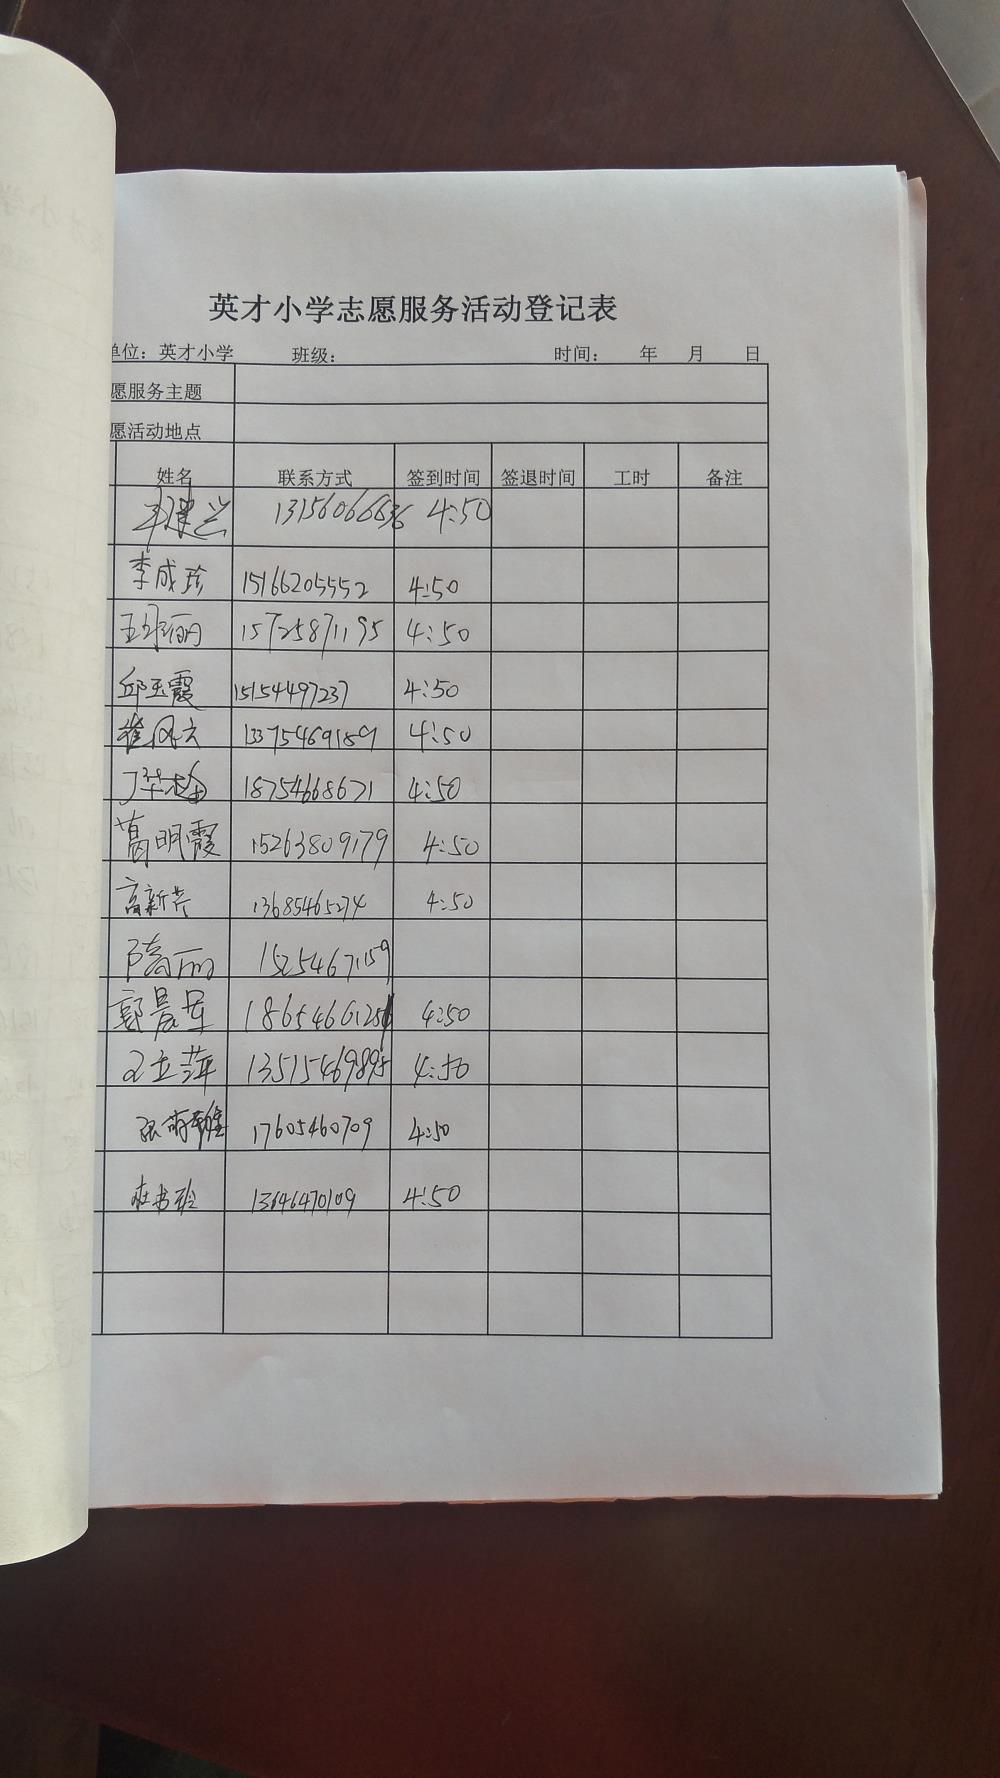 英才小学志愿服务活动登记表
单位：英才小学 班级： 时间： 年 月 日
愿服务主题
愿活动地点
姓名 联系方式 签到时间 签退时间 工时 备注
13156066636 4:50
李成珍 15166205552 4:50
15725871195 4:50
邱玉霞 15154497237 4:50
崔风云 13375469189 4:50
丁华梅 18754668671 4:50
葛明霞 15263809179 4:50
高新芹 13685465274 4:50
隋丽 15254671159
郭晨军 4:50
王立萍 13515469895 4:50
张 17605460709 4:50
杜书玲 13646470109 4:50